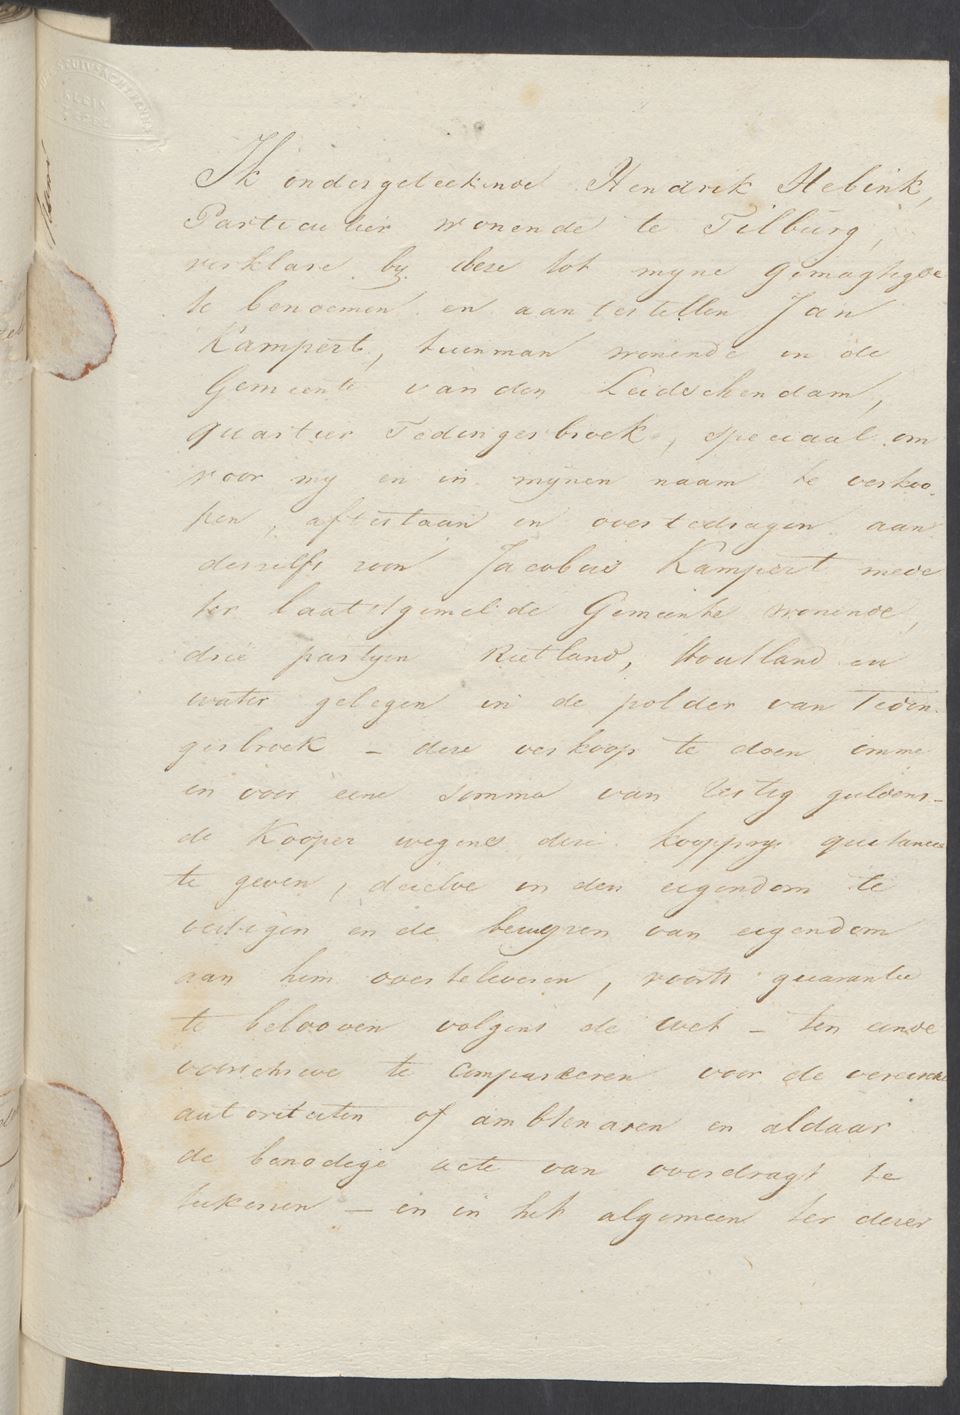 Ik ondergeteekende Hendrik Hebink,
Particulier wonende te Tilburg,
verklare by deze tot myne gemagtigde
te benoemen en aantestellen Jan
Kampert, tuinman wonende in de
Gemeente van den Leidschendam,
quartier Tedingerbroek, speciaal om
voor my en in mynen naam te verkoo-
pen, aftestaan en overtedragen aan
deszelfs zoon Jacobus Kampert mede
ter laatstgemelde Gemeente wonende,
drie partyen Rietland, Houtland en
water gelegen in de polder van Tedin-
gerbroek - deze verkoop te doen omme
en voor eene somma van zestig guldens-
de Kooper wegens deze koopprys quitancie
te geven, dezelve in den eigendom te
vestigen en de bewyzen van eigendom
aan hem overteleveren, voorts guarantie
te belooven volgens de wet - ten einde
voorschreve te compareren voor de vereischte
autoriteiten of ambtenaren en aldaar
de benodigde acte van overdragt te
teekenen - en in het algemeen ter dezer